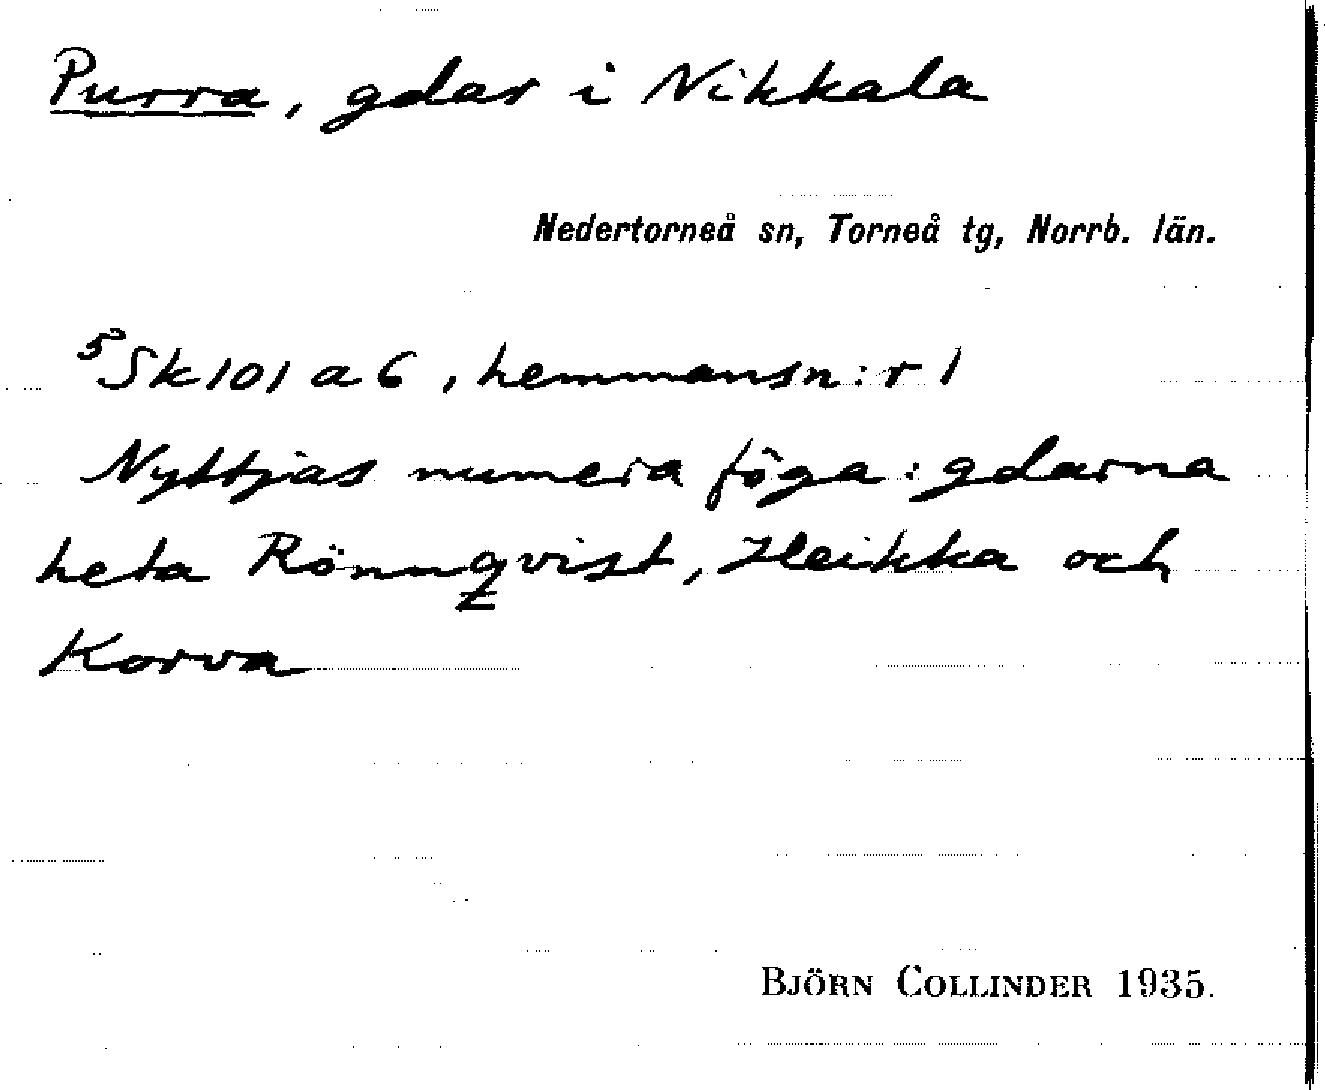 Purra, gdar i Nikkala
Nedertorneå sn, Torneå tg, Norrb. län.
5Sk101a6, hemmansn:r 1
Nyttjas numera föga: gdarna
heta Rönnqvist, Heikka och
Korva
BJÖRN COLLINDER 1935.